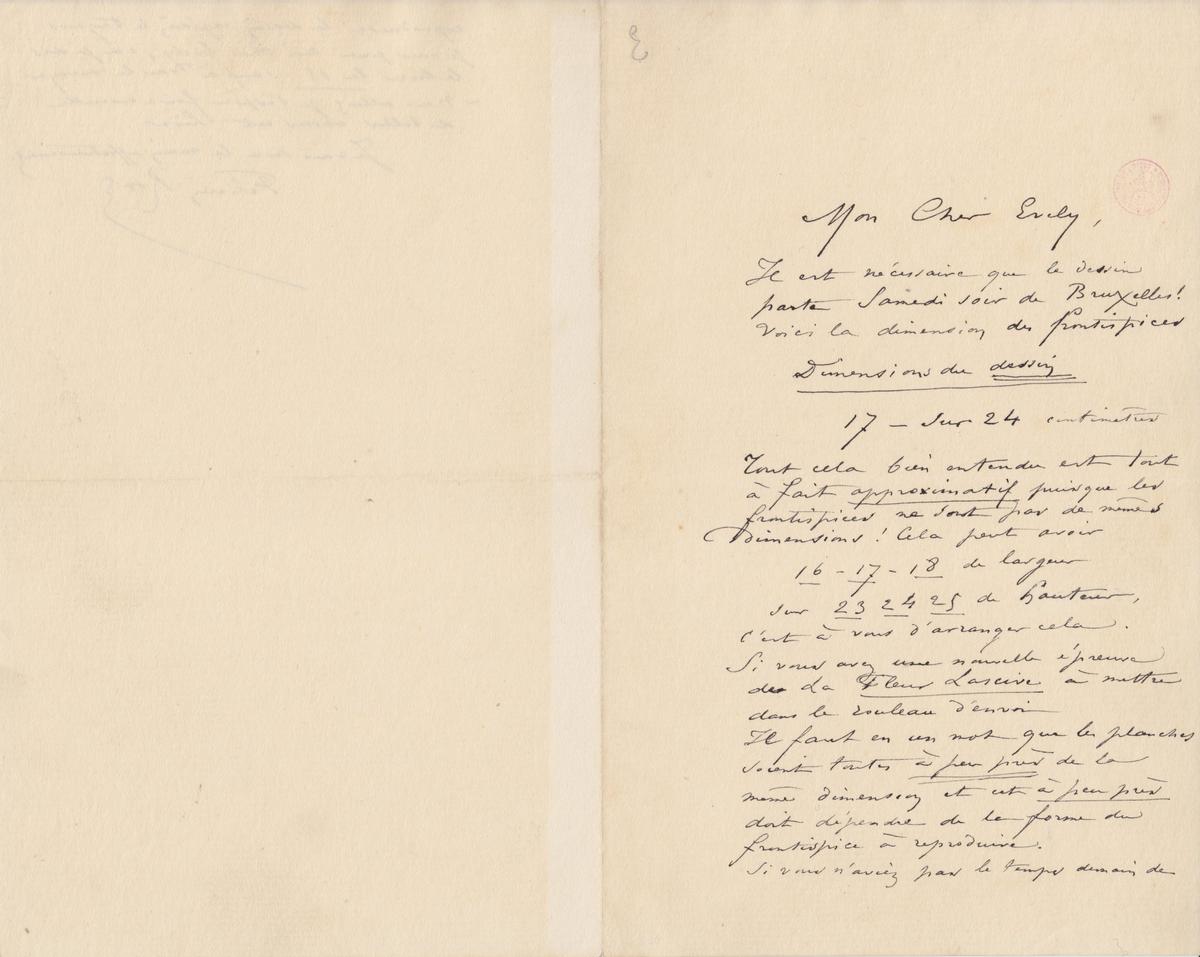 Mon Cher Evely,
Il est nécessaire que le dessin
parte Samedi soir de Bruxelles!
Voici la dimension des frontispices
Dimensions du dessin
17 — sur 24 centimètres
Tout cela bien entendu est tout
à fait approximatif puisque les
frontispices ne sont pas de mêmes
dimensions! Cela peut avoir
16 - 17 - 18 de largeur
sur 23 24 25 de hauteur,
c'est à vous d'arranger cela.
Si vous avez une nouvelle épreuve
de La Fleur Lascive à mettre
dans le rouleau d'envoi
Il faut en un mot que les planches
soient toutes à peu près de la
même dimension et cet à peu près
doit dépendre de la forme du
frontispice à reproduire.
Si vous n'aviez pas le temps demain de